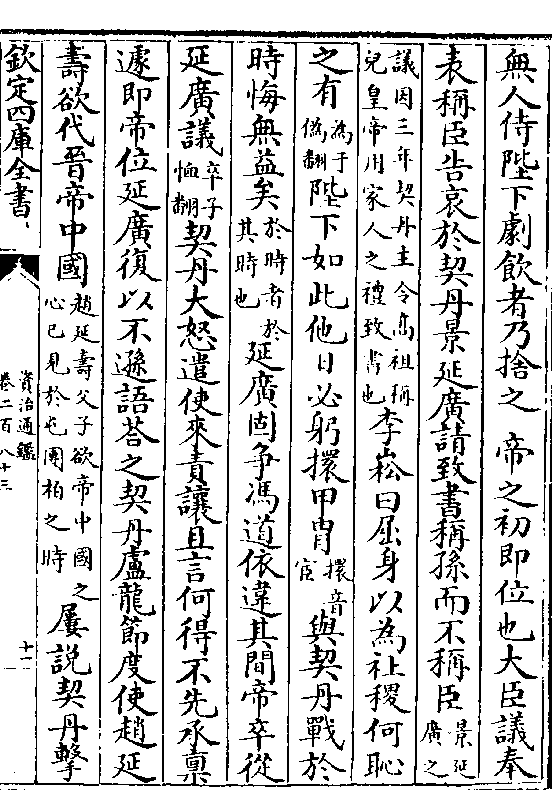 無人侍陛下劇飲者乃捨之　帝之初即位也大臣議奉
表稱臣告哀於契丹景延廣請致書稱孫而不稱臣景延廣之
議因三年契丹主令高祖稱兒皇帝用家人之禮致書也李崧曰屈身以為社稷何恥
之有為于偽翻陛下如此他日必躬擐甲胄擐音宦與契丹戰於
時悔無益矣於時者於其時也延廣固争馮道依違其間帝卒從
延廣議卒子恤翻契丹大怒遣使來責讓且言何得不先承稟
遽即帝位延廣復以不遜語荅之契丹盧龍節度使趙延
壽欲代晉帝中國趙延壽父子欲帝中國之心已見於屯團柏之時屢說契丹擊
欽定四庫全書
資治通鑑
卷二百八十三
十二